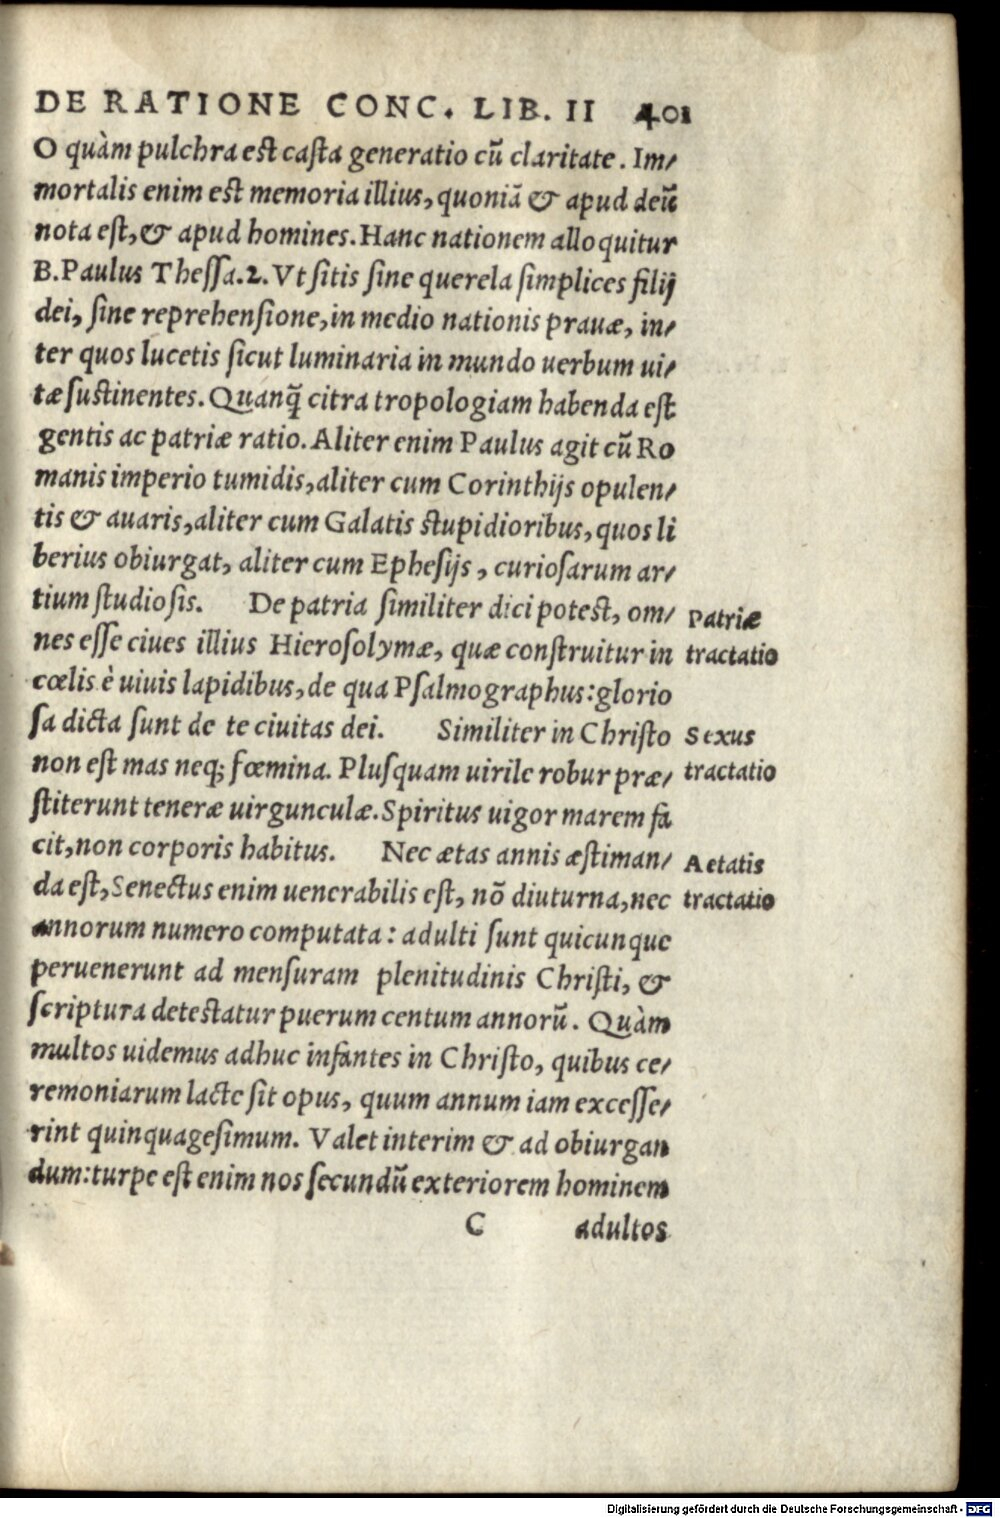 DE RATIONE CONC. LIB. II 401
O quàm pulchra est casta generatio cũ claritate. Im-
mortalis enim est memoria illius, quoniã & apud deũ
nota est, & apud homines. Hanc nationem alloquitur
B. Paulus Thessa. 2. Vt sitis sine querela simplices filij
dei, sine reprehensione, in medio nationis prauæ, in-
ter quos lucetis sicut luminaria in mundo uerbum ui-
tæ sustinentes. Quanq̃ citra tropologiam habenda est
gentis ac patriæ ratio. Aliter enim Paulus agit cũ Ro
manis imperio tumidis, aliter cum Corinthijs opulen-
tis & auaris, aliter cum Galatis stupidioribus, quos li
berius obiurgat, aliter cum Ephesijs, curiosarum ar-
tium studiosis. De patria similiter dici potest, om-
Patriæ
nes esse ciues illius Hierosolymæ, quæ construitur in
tractatio
cœlis è uiuis lapidibus, de qua Psalmographus: glorio
sa dicta sunt de te ciuitas dei. Similiter in Christo
Sexus
non est mas neq; fœmina. Plusquam uirile robur præ-
tractatio
stiterunt teneræ uirgunculæ. Spiritus uigor marem fa
cit, non corporis habitus. Nec ætas annis æstiman-
Aetatis
da est, Senectus enim uenerabilis est, nõ diuturna, nec
tractatio
annorum numero computata: adulti sunt quicunque
peruenerunt ad mensuram plenitudinis Christi, &
scriptura detestatur puerum centum annorũ. Quàm
multos uidemus adhuc infantes in Christo, quibus ce-
remoniarum lacte sit opus, quum annum iam excesse-
rint quinquagesimum. Valet interim & ad obiurgan
dum: turpe est enim nos secundũ exteriorem hominem
C adultos
Digitalisierung gefördert durch die Deutsche Forschungsgemeinschaft - DFG